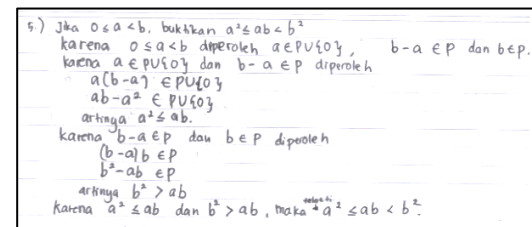 5.) Jika 0 ≤ a < b, buktikan a² ≤ ab < b²
karena 0 ≤ a < b diperoleh a ∈ P∪{0}, b-a ∈ P dan b ∈ P.
karena a ∈ P∪{0} dan b-a ∈ P diperoleh
a(b-a) ∈ P∪{0}
ab-a² ∈ P∪{0}
artinya a² ≤ ab.
karena b-a ∈ P dan b ∈ P diperoleh
(b-a)b ∈ P
b²-ab ∈ P
artinya b² > ab
karena a² ≤ ab dan b² > ab, maka a² ≤ ab < b².